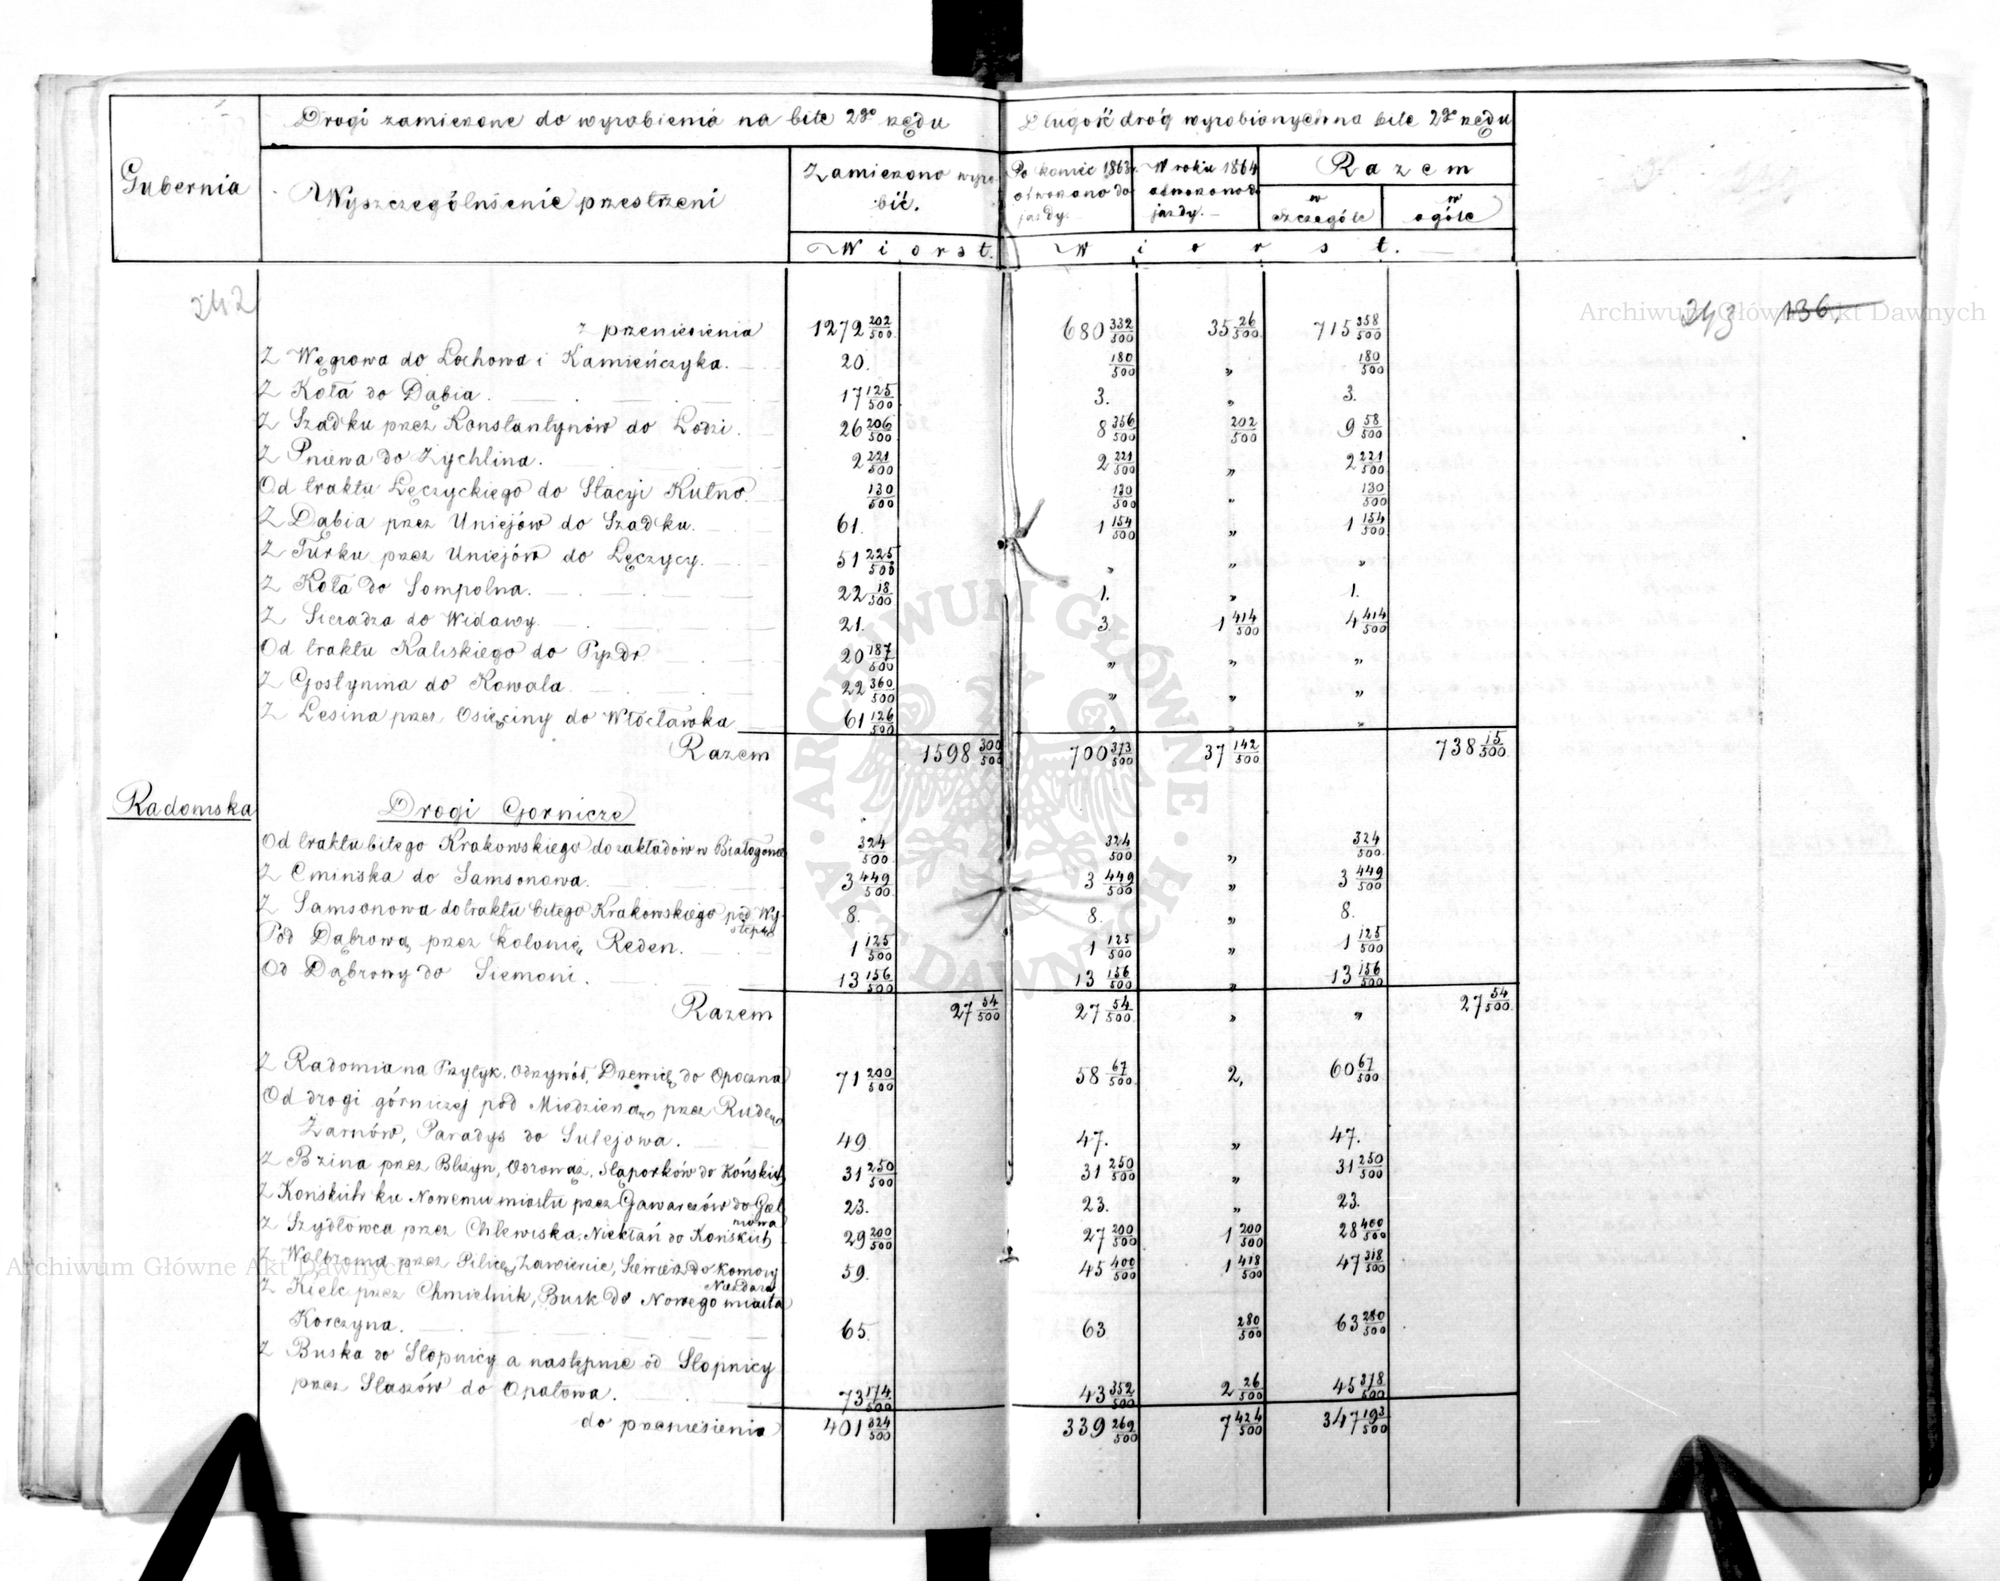 Drogi zamierzone do wyrobienia na bite 2go rzędu
Długość dróg wyrobionych na bite 2go rzędu
Gubernia
Wyszczególnienie przestrzeni
Zamierzono wyro-
bić.
Po koniec 1863 r.
otworzono do
jazdy.
W roku 1864
otworzono do
jazdy.
Razem
w
szczególe
w
ogóle
Wiorst.
Wiorst.
242
243 136
Archiwum Główne Akt Dawnych
z przeniesienia 1272 202/500 680 332/500 35 26/500 715 358/500
Z Węgrowa do Łochowa i Kamieńczyka. 20. 180/500 „ 180/500
Z Koła do Dąbia. 17 125/500 3. „ 3.
Z Szadku przez Konstantynów do Łodzi. 26 206/500 8 356/500 202/500 9 58/500
Z Pniewa do Żychlina. 2 221/500 2 221/500 „ 2 221/500
Od traktu Łęczyckiego do Stacyi Kutno 130/500 130/500 „ 130/500
Z Dąbia przez Uniejów do Szadku. 61. 1 154/500 „ 1 154/500
Z Turku przez Uniejów do Łęczycy. 51 225/500 „ „ „
Z Koła do Sompolna. 22 18/500 1. „ 1.
Z Sieradza do Widawy. 21. 3. 1 414/500 4 414/500
Od traktu Kaliskiego do Pyzdr 20 187/500 „ „ „
Z Gostynina do Kowala 22 360/500 „ „ „
Z Lesina przez Osięciny do Włocławka 61 126/500 „ „ „
Razem 1598 300/500 700 373/500 37 142/500 738 15/500
Radomska
Drogi Gornicze
Od traktu bitego Krakowskiego do zakładów w Białogonie 324/500 324/500 „ 324/500
Z Cminska do Samsonowa. 3 449/500 3 449/500 „ 3 449/500
Z Samsonowa do traktu bitego Krakowskiego pod Wy-
stępą 8. 8. „ 8.
Pod Dąbrową przez kolonię Reden. 1 125/500 1 125/500 „ 1 125/500
Od Dąbrowy do Siemoni. 13 156/500 13 156/500 „ 13 156/500
Razem 27 54/500 27 54/500 „ „ 27 54/500
Z Radomia na Przytyk, Odrzywół, Drzewicę do Opoczna 71 200/500 58 67/500 2, 60 67/500
Od drogi górniczej pod Miedzierzą przez Rudę
Żarnów, Paradyz do Sulejowa. 49. 47. „ 47.
Z Bzina przez Bliżyn, Odrowąż, Stąporków do Końskich 31 250/500 31 250/500 „ 31 250/500
Z Końskich ku Nowemu miastu przez Gowarczów do Giel
niowa 23. 23. „ 23.
Z Szydłowca przez Chlewiska, Niekłań do Końskich 29 200/500 27 200/500 1 200/500 28 400/500
Z Wolbromia przez Pilicę, Zawiercie, Siewierz do Komory
Niezdara 59. 45 400/500 1 418/500 47 318/500
Z Kielc przez Chmielnik, Busk do Nowego miasta
Korczyna. 65. 63 280/500 63 280/500
Z Buska do Stopnicy a następnie od Stopnicy
przez Staszów do Opatowa. 73 174/500 43 352/500 2 26/500 45 378/500
do przeniesienia 401 324/500 339 269/500 7 424/500 347 193/500
Archiwum Główne Akt Dawnych
ARCHIWUM GŁÓWNE AKT DAWNYCH